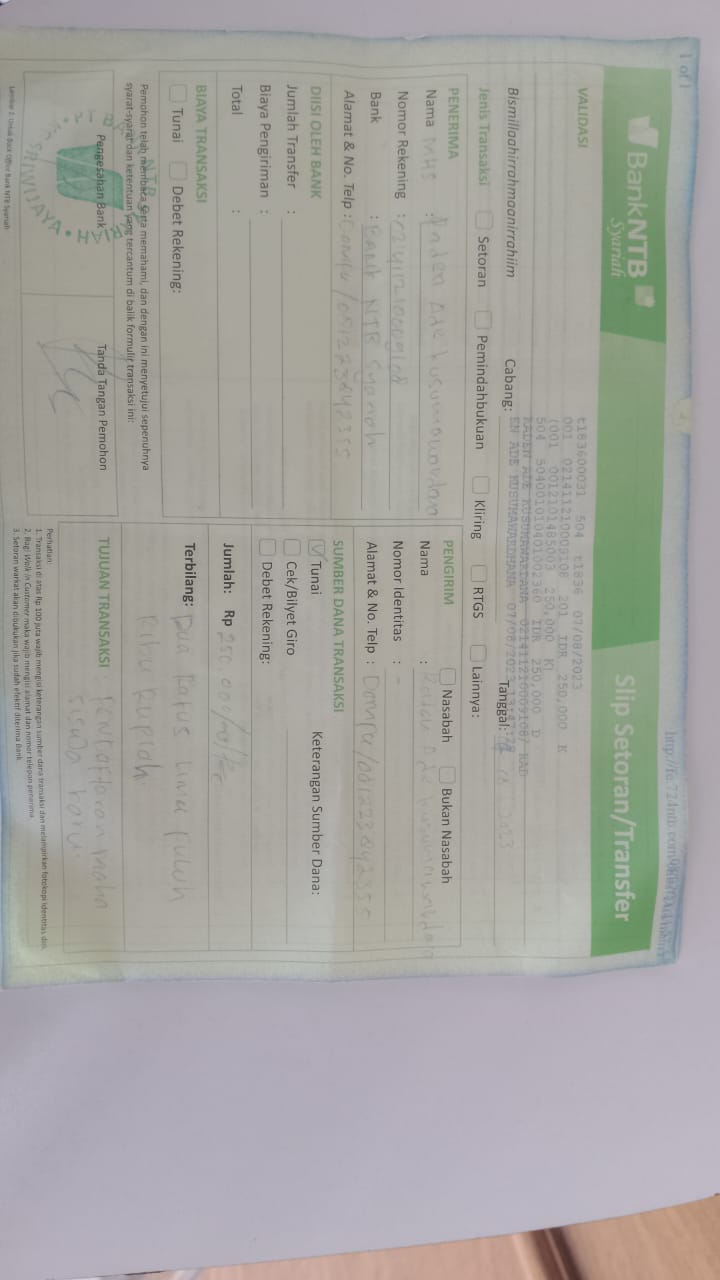 1 of 1
BankNTB
Syariah
Slip Setoran/Transfer
VALIDASI
t183600031 504 t1836 07/08/2023
001 0214112100009108 201 IDR 250,000 K
(001 0012101486003 250,000 K)
504 504001010401002360 IDR 250,000 D
RADEN ADE KUSUMAWARDANA
EN ADE KUSUMAWARDHANA 07/08/2023
Bismillaahirrahmaanirrahiim
Cabang:
Tanggal:
Jenis Transaksi Setoran Pemindahbukuan Kliring RTGS Lainnya:
PENERIMA
Nama : Raden Ade Kusumawardana
Nomor Rekening :
Bank : Bank NTB Syariah
Alamat & No. Telp : Dompu /
PENGIRIM Nasabah Bukan Nasabah
Nama : Raden Ade Kusumawardana
Nomor Identitas : -
Alamat & No. Telp : Dompu /
DIISI OLEH BANK
Jumlah Transfer :
Biaya Pengiriman :
Total :
SUMBER DANA TRANSAKSI
Tunai Keterangan Sumber Dana:
Cek/Bilyet Giro
Debet Rekening:
BIAYA TRANSAKSI
Tunai Debet Rekening:
Jumlah: Rp 250.000
Terbilang: Dua Ratus Lima Puluh
Ribu Rupiah
Pemohon telah membaca serta memahami, dan dengan ini menyetujui sepenuhnya
syarat-syarat dan ketentuan yang tercantum di balik formulir transaksi ini:
Pengesahan Bank
Tanda Tangan Pemohon
TUJUAN TRANSAKSI Pendaftaran Maha
siswa baru
Perhatian:
1. Transaksi di atas Rp 100 juta wajib mengisi keterangan sumber dana transaksi dan melampirkan fotokopi identitas diri.
2. Bagi Walk in Customer maka wajib mengisi alamat dan nomor telepon penerima.
3. Setoran warkat akan dibukukan jika sudah efektif diterima Bank.
Lembar 2: Untuk Back Office Bank NTB Syariah